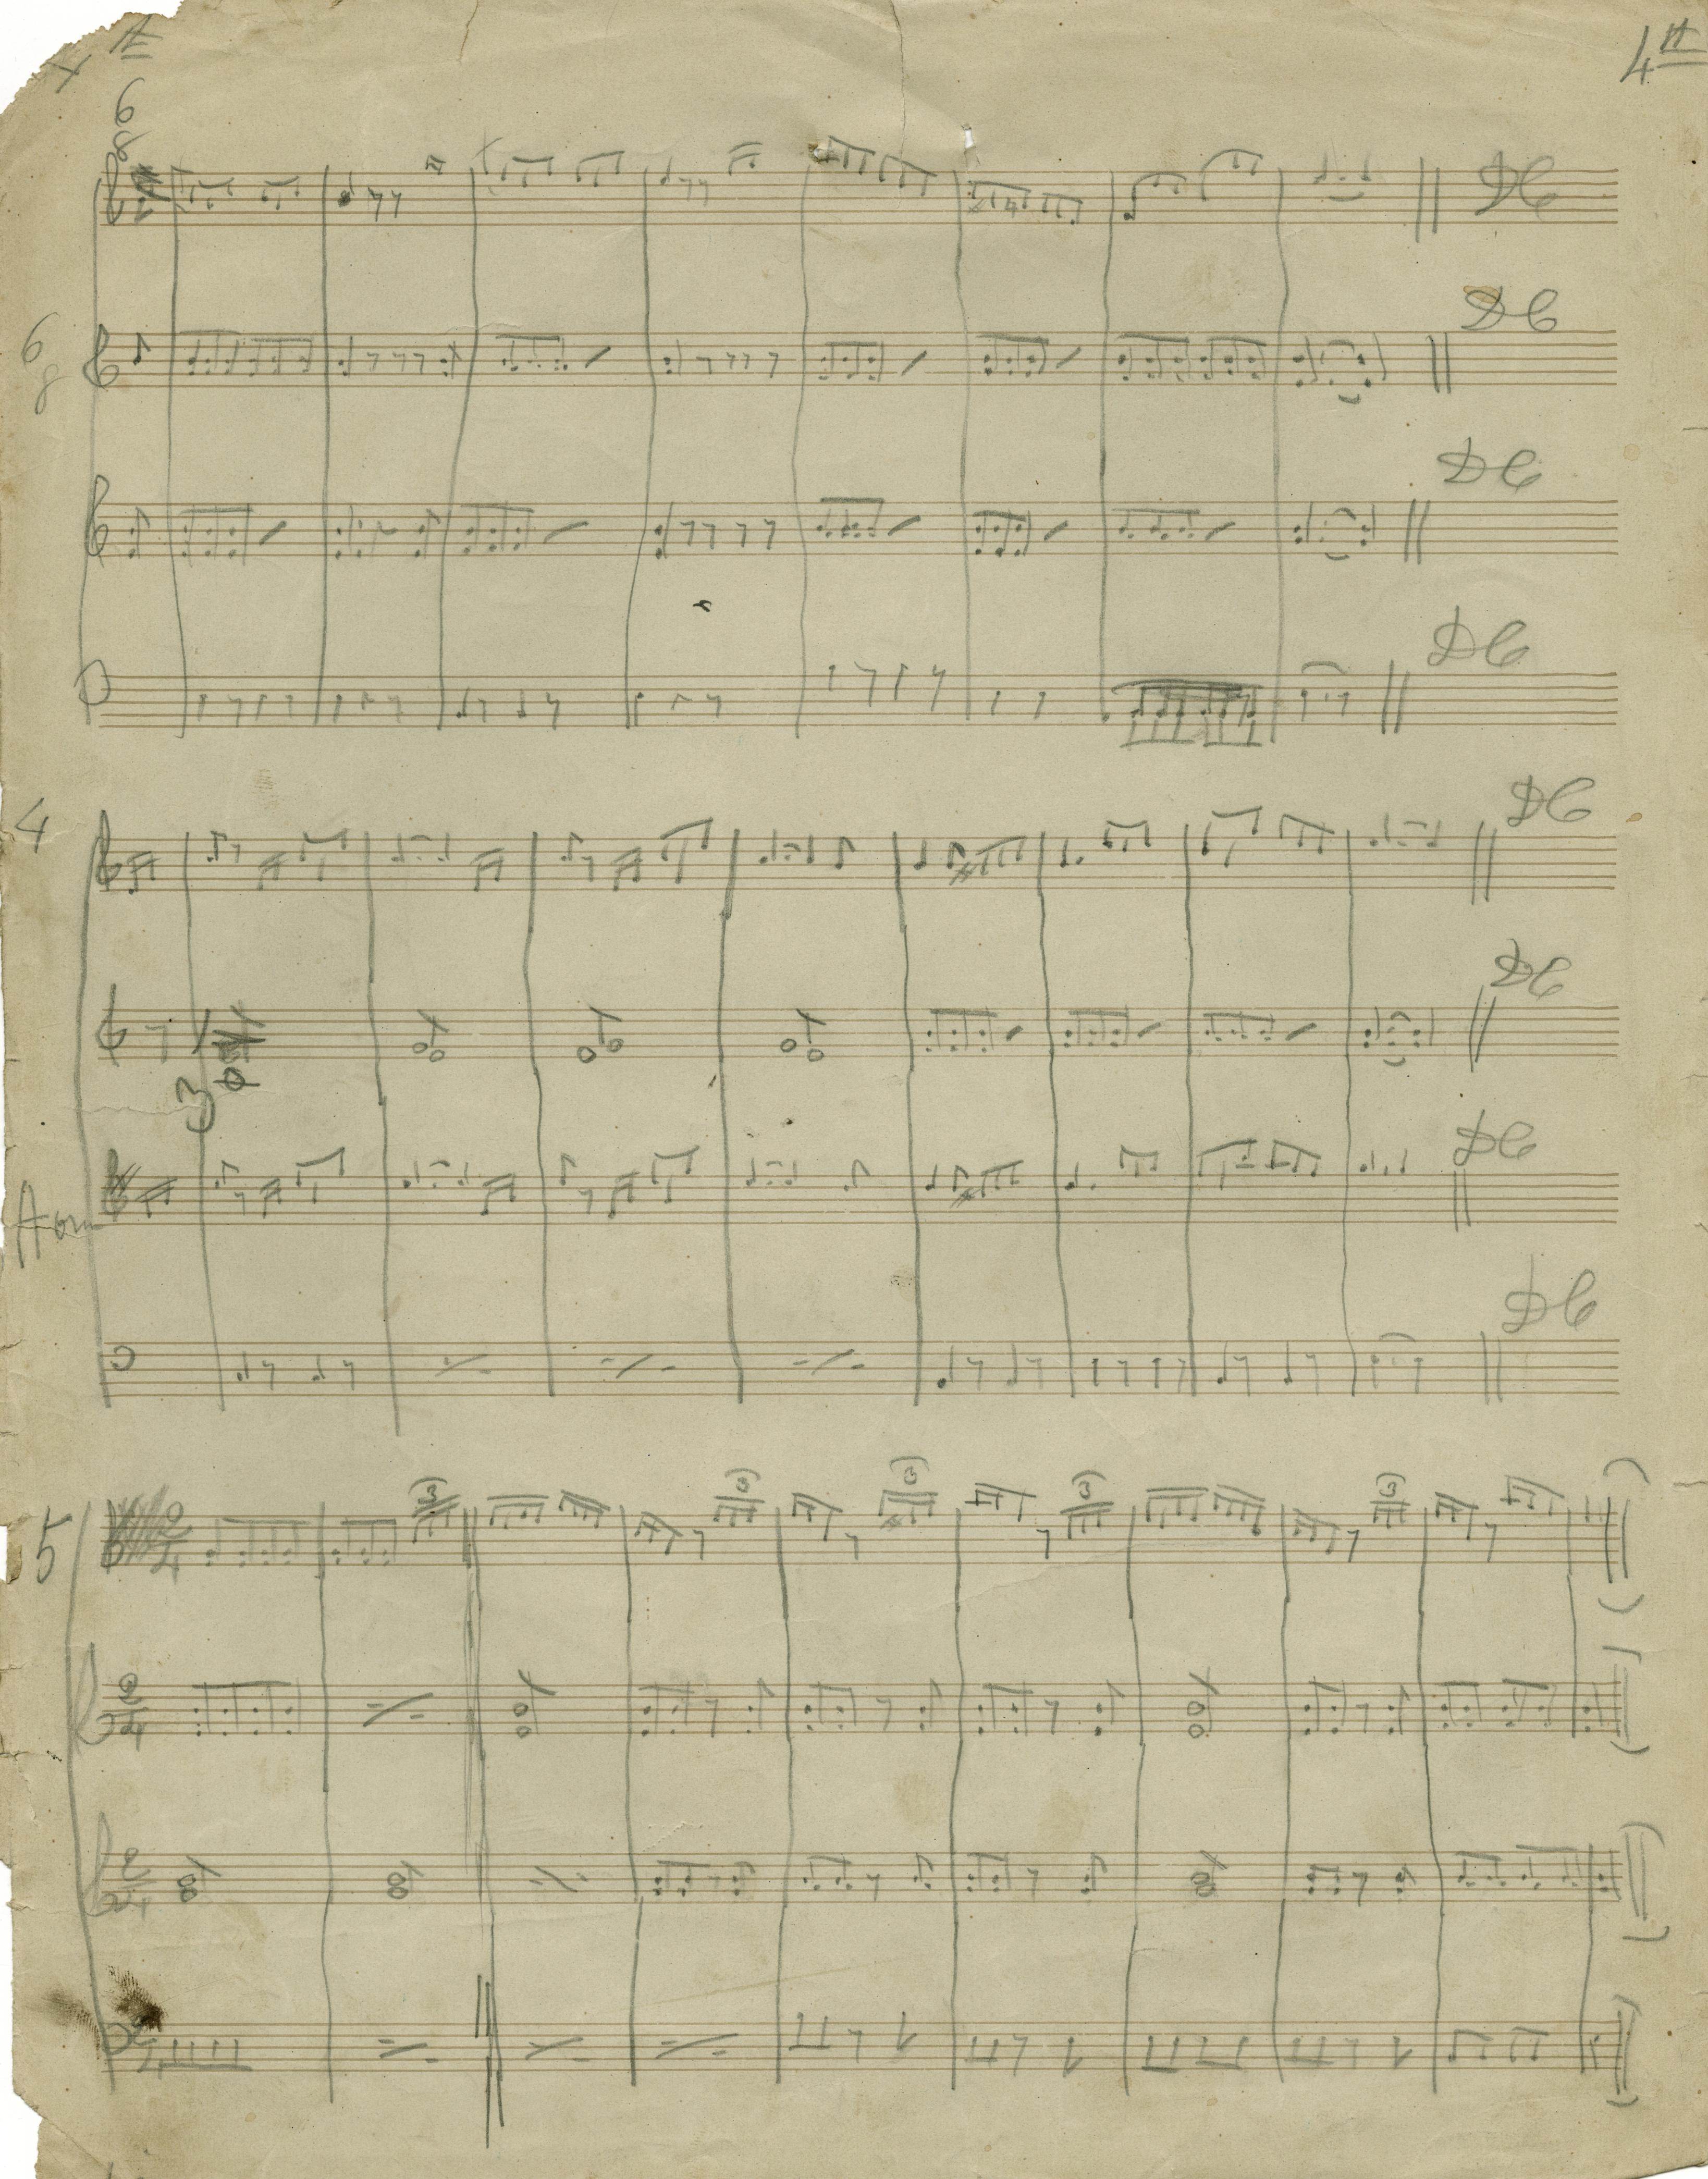 4
6
8
DC
6
8
DC
DC
DC
4
DC
DC
3
DC
DC
5
2
4
3
3
3
3
3
2
4
2
4
2
4